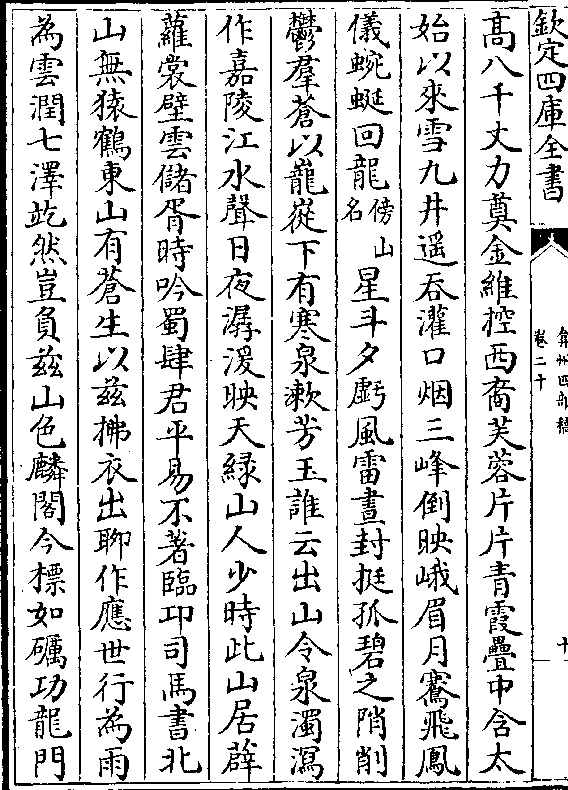 欽定四庫全書
弇州四部稿
卷二十
十
高八千丈力奠金維控西裔芙蓉片片青霞疊中含太
始以來雪九井遥吞灌口烟三峰倒映峨眉月騫飛鳳
儀蜿蜒回龍傍山名星斗夕虧風雷晝封挺孤碧之陗削
鬱羣蒼以巃嵸下有寒泉漱芳玉誰云出山令泉濁瀉
作嘉陵江水聲日夜潺湲映天緑山人少時此山居薜
蘿裳壁雲儲胥時吟蜀肆君平易不著臨卭司馬書北
山無猿鶴東山有蒼生以兹拂衣出聊作應世行為雨
為雲潤七澤屹然豈負兹山色麟閣今標如礪功龍門